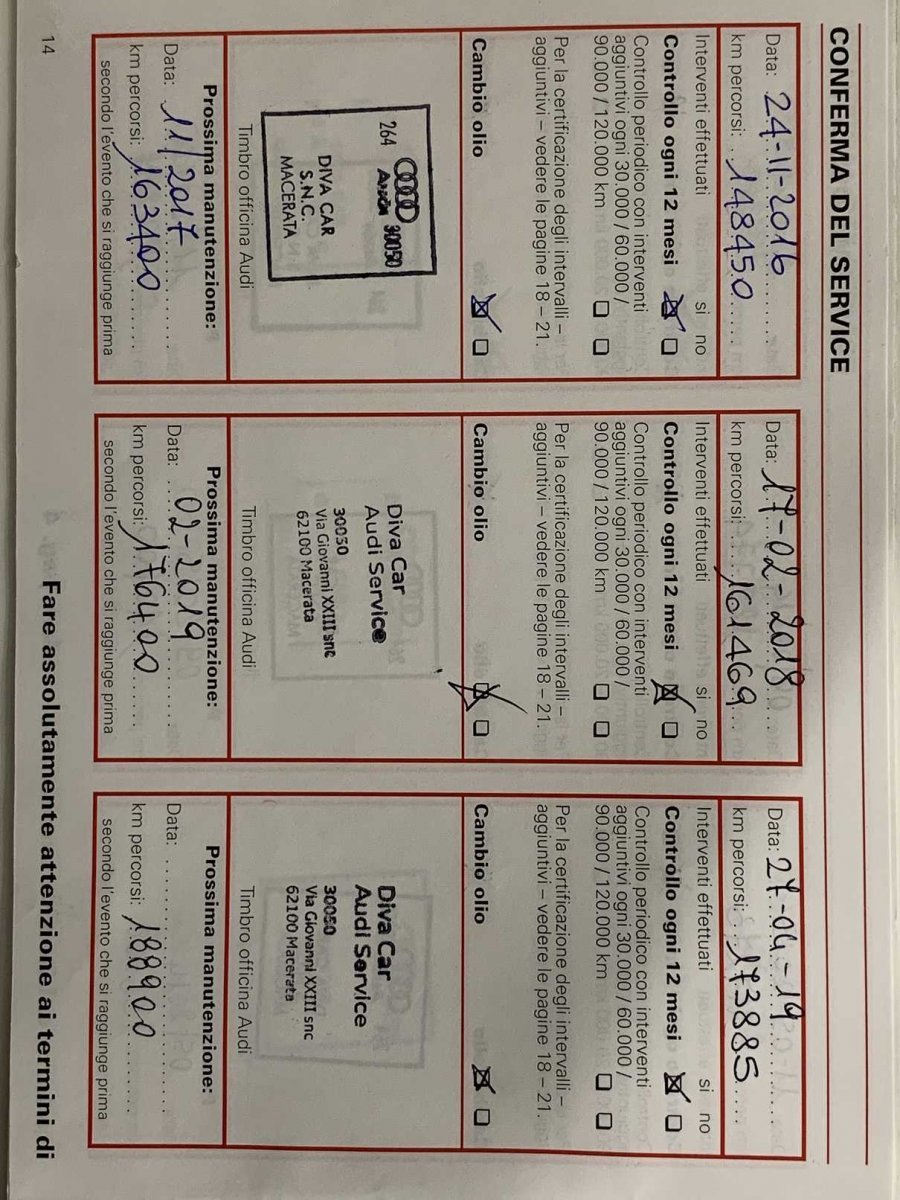 CONFERMA DEL SERVICE
Data: 24-11-2016
km percorsi: 148450
Interventi effettuati si no
Controllo ogni 12 mesi
Controllo periodico con interventi
aggiuntivi ogni 30.000 / 60.000 /
90.000 / 120.000 km
Per la certificazione degli intervalli –
aggiuntivi – vedere le pagine 18 – 21.
Cambio olio
264 Audi 30050
DIVA CAR
S.N.C.
MACERATA
Timbro officina Audi
Prossima manutenzione:
Data: 11/2017
km percorsi: 163400
secondo l'evento che si raggiunge prima
Data: 17-02-2018
km percorsi: 161469
Interventi effettuati si no
Controllo ogni 12 mesi
Controllo periodico con interventi
aggiuntivi ogni 30.000 / 60.000 /
90.000 / 120.000 km
Per la certificazione degli intervalli –
aggiuntivi – vedere le pagine 18 – 21.
Cambio olio
Diva Car
Audi Service
30050
Via Giovanni XXIII snc
62100 Macerata
Timbro officina Audi
Prossima manutenzione:
Data: 02-2019
km percorsi: 176400
secondo l'evento che si raggiunge prima
Data: 27-04-19
km percorsi: 173885
Interventi effettuati si no
Controllo ogni 12 mesi
Controllo periodico con interventi
aggiuntivi ogni 30.000 / 60.000 /
90.000 / 120.000 km
Per la certificazione degli intervalli –
aggiuntivi – vedere le pagine 18 – 21.
Cambio olio
Diva Car
Audi Service
30050
Via Giovanni XXIII snc
62100 Macerata
Timbro officina Audi
Prossima manutenzione:
Data:
km percorsi: 188900
secondo l'evento che si raggiunge prima
Fare assolutamente attenzione ai termini di
14